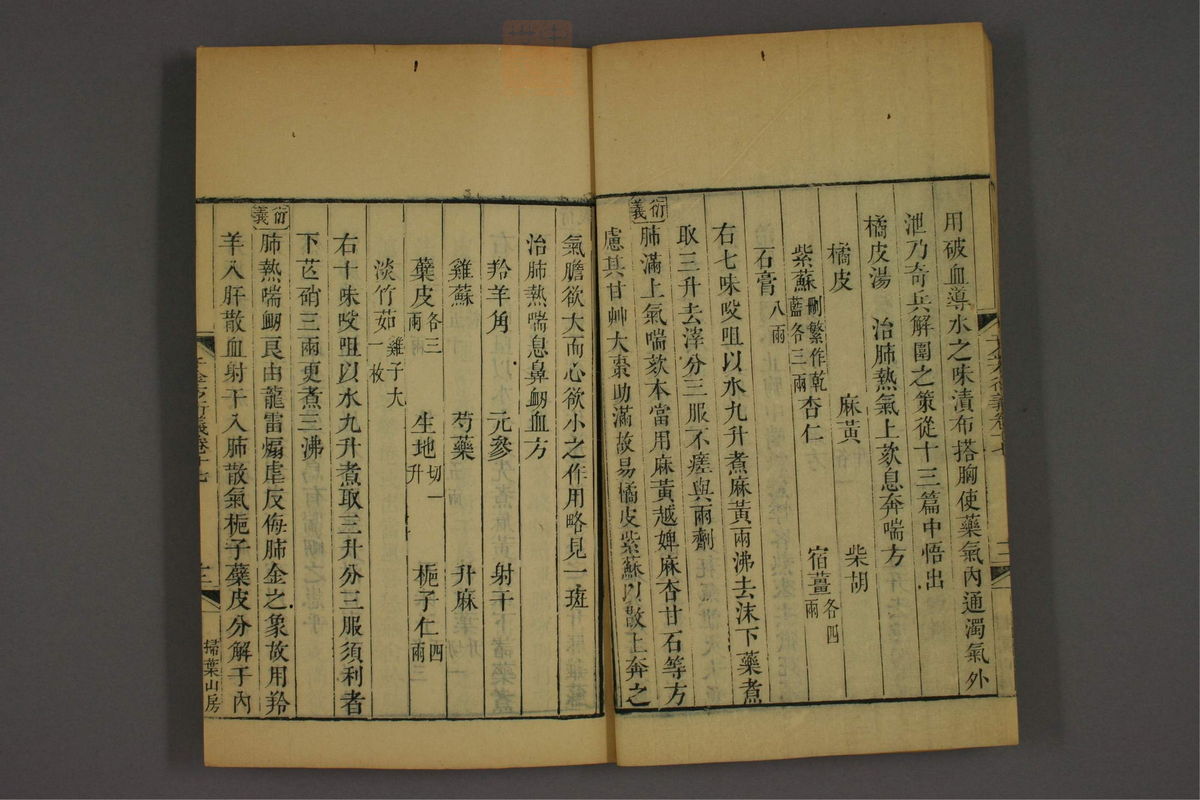 用破血導水之味漬布搭胸使藥氣內通濁氣外
泄乃奇兵解圍之策從十三篇中悟出
橘皮湯　治肺熱氣上欬息奔喘方
橘皮　麻黃　柴胡
紫蘇刪繁作乾藍各三兩　杏仁　宿薑各四兩
石膏八兩
右七味㕮咀以水九升煮麻黃兩沸去沫下藥煮
取三升去滓分三服不瘥與兩劑
衍義
肺滿上氣喘欬本當用麻黃越婢麻杏甘石等方
慮其甘艸大棗助滿故易橘皮紫蘇以散上奔之
氣膽欲大而心欲小之作用略見一斑
治肺熱喘息鼻衂血方
羚羊角　元參　射干
雞蘇　芍藥　升麻
蘗皮各三兩　生地切一升　梔子仁四兩
淡竹茹雞子大一枚
右十味㕮咀以水九升煮取三升分三服須利者
下芒硝三兩更煮三沸
衍義
肺熱喘衂良由龍雷煽虐反侮肺金之象故用羚
羊入肝散血射干入肺散氣梔子蘗皮分解于內
千金方衍義卷十七
十二
掃葉山房